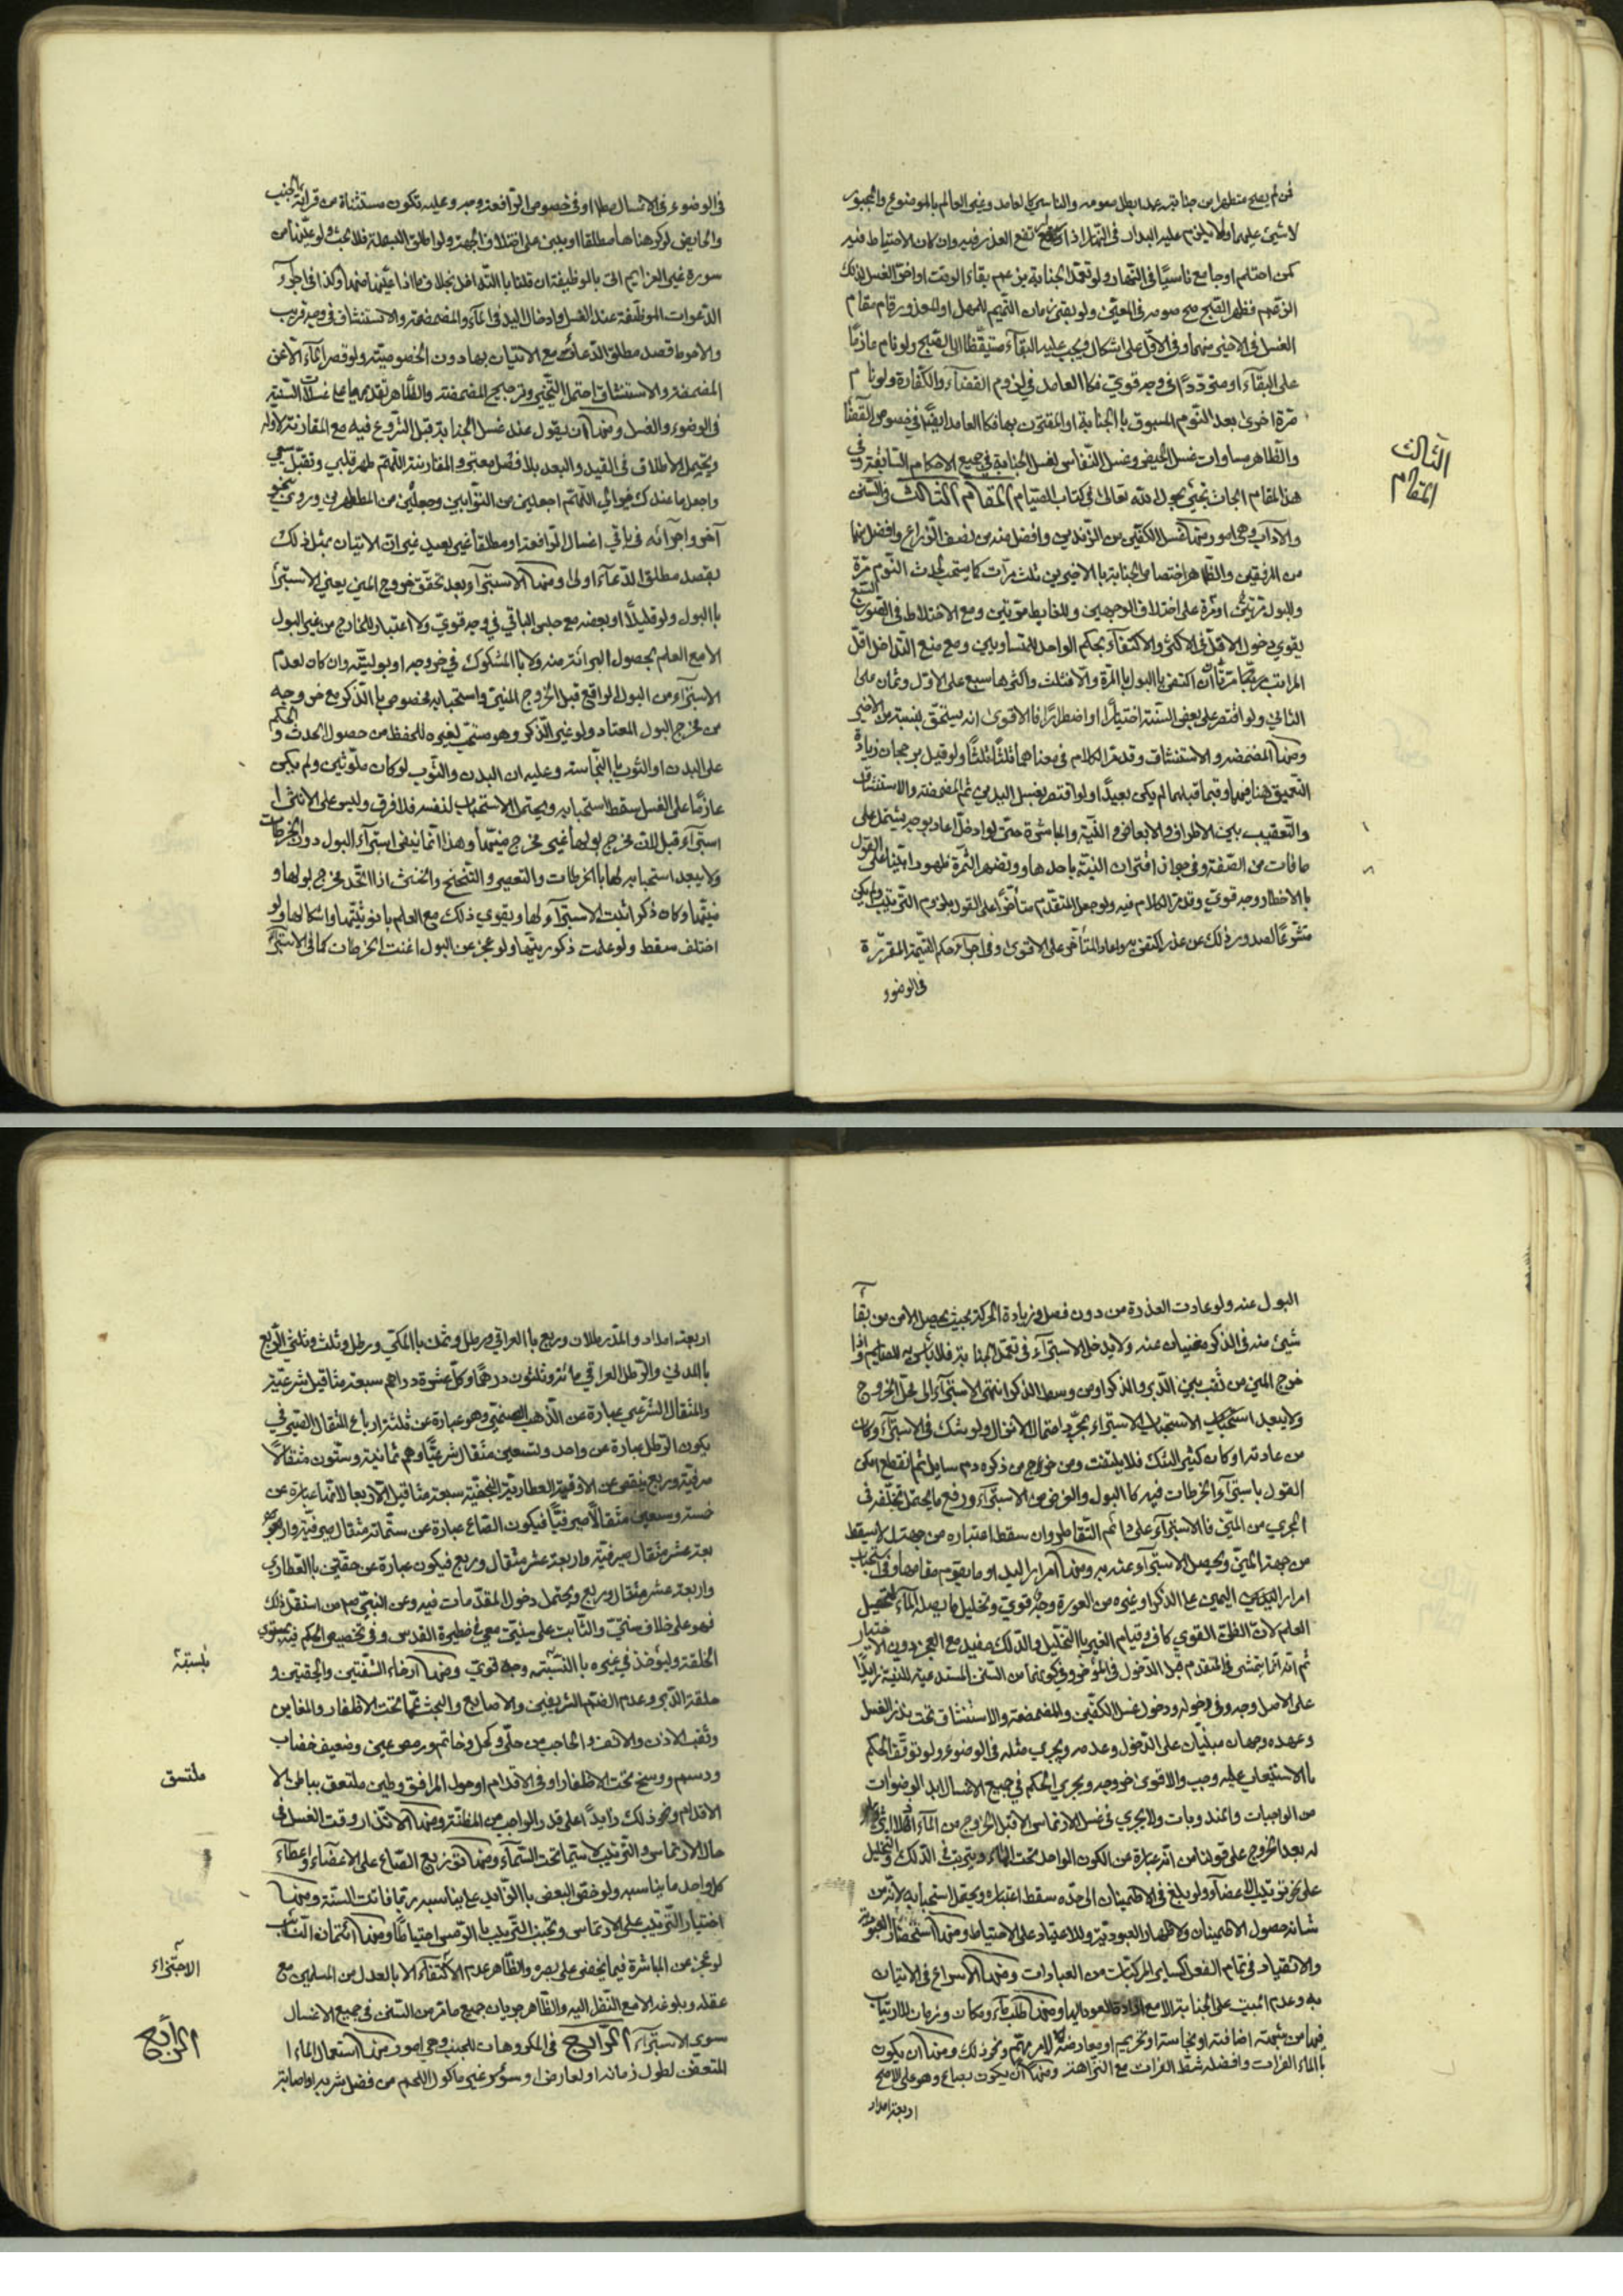 فمن لم يصبح متطهرا من جنابته عمدا بطل صومه والناسي كالعامد وغير العالم بالموضوع والمجبور
لا شيئ عليهما ولا يلزم عليه البدار في النهار اذا ارتفع العذر فيه وان كان الاحتياط فيه
كمن احتلم اوجامع ناسيًا في النهار ولو تعمد الجنابة بزعم بقاء الوقت او اخر الغسل لذلك
الزعم فظهر الصبح صح صومه في المعيّن ولو بقي زمان التيمم للمهمل او المعذور قام مقام
الغسل في الاخير منهما وفي الاوّل على اشكال ويجب عليه البقآء متيقّظا الى الصبح ولو نام عازمًا
على البقآء او متردّدًا في وجه قويّ فكالعامد في لزوم القضآء والكفارة ولو نام
مرّة اخرى بعد النوم المسبوق بالجنابة او المقترن بها فكالعامد ايضًا في خصوص القضا
والظاهر مساوات غسل الحيض وغسل النفاس لغسل الجنابة في جميع الاحكام السابقة وفي
هذا المقام ابحاث تجيئ بحول الله تعالى في كتاب الصيام المقام الثالث في السنن
والآداب وهي امور ومنها غسل الكفّين من الزندين وافضل منه من نصف الذراع وافضل منهما
من المرفقين والظاهر اختصاص الجنابة بالاخيرين ثلث مرّات كما يستحب لحدث النوم مرّة
وللبول مرّتين او مرّة على اختلاف الوجهين وللغايط مرّتين ومع الاختلاط في الصور التسع
يقوى دخول الاقلّ في الاكثر والاكتفآء بحكم الواحد للمتساويين ومع منع التداخل اقلّ
المراتب مرّتان ان اكتفى بالبول بالمرّة والّا فثلث واكثرها سبع على الاوّل وثمان على
الثاني ولو اقتصر على بعض السنّة اختيارًا او اضطرارًا فالاقوى انه يستحق بنسبته من الاجر
ومنها المضمضه والاستنشاق وقد مرّ الكلام في معناهما ثلثًا ثلثًا ولو قيل برجحان زيادة
التعميق هنا فيهما وفيما قبلهما لم يكن بعيدًا ولو اقتصر بغسل اليدين ثم المضمضة والاستنشاق
والتعقيب بين الاطراف والابعاض في النيّة والمباشرة حتى لو ادخل اعاد بوجه يشتمل على
ما فات من الصّفة وفي جواز اقتران النية باحدها وتظهر الثمرة ظهورا بيّنا على القول
بالاخطار وجه قويّ وقد مرّ الكلام فيه ولو جعل المتقدّم متأخّرًا على القول بلزوم الترتيب ولم يكن
متشرّعًا لصدور ذلك عن عذر اكتفى به واعاد المتأخّر على الاقوى وفي اجرآء حكم التيمّة المقرّرة
في الوضوء
الثالث
المقام
في الوضوء في الاغسال مطلقا او في خصوص الرّافعة وجه وعليه تكون مستثناة من قرائة الجنب
والحايض لو كرهناها مطلقا او يبنى على اختلاف الجهة ولو اطلق البسملة فلا بحث ولو عيّنها من
سورة غير العزايم اتى بالوظيفة ان قلنا بالتداخل بخلاف ما اذا عيّنها منها وكذا في اجرآء
الدعوات الموظّفة عند الغسل وادخال اليد في المآء والمضمضة والاستنشاق في وجه قريب
والاحوط قصد مطلق الدعآء مع الاتيان بها دون الخصوصيّة ولو قصر المآء الّا عن
المضمضة والاستنشاق احتمل التخيير وترجيح المضمضة والظاهر تقديمهما على غسلات السنّية
في الوضوء والغسل ومنها ان يقول عند غسل الجنابة قبل الشروع فيه مع المقارنة لاوّله
ويحتمل الاطلاق في القبل والبعد بلا فصل معتبر والمقارنة اللهمّ طهر قلبي وتقبّل سعيي
واجعل ما عندك خيرا لي اللهمّ اجعلني من التوابين واجعلني من المتطهرين وروي بنحو
آخر واجرآئه في باقي اغسال الرّافعة او مطلقا غير بعيد غير ان الاتيان بمثل ذلك
بقصد مطلق الدّعآء اولى ومنها الاستبرآء بعد تحقّق خروج المني يعني الاستبرآ
بالبول ولو قليلًا او بعضه مع حبس الباقي في وجه قويّ ولا اعتبار للخارج من غير البول
الا مع العلم بحصول البرائة منه ولا بالمشكوك في خروجه او بوليّته وان كان لعدم
الاستبرآء من البول الواقع قبل الخروج المنيّ واستحبابه مخصوص بالذكر مع خروجه
من مخرج البول المعتاد ولو غير الذكر وهو مستحب لغيره للتحفظ من حصول الحدث والحكم
على البدن او الثوب بالنجاسة وعليه ان البدن والثوب لو كان ملوّثين ولم يكن
عازمًا على الغسل سقط استحبابه ويحتمل الاستحباب لنفسه فلا فرق وليس على الانثى
استبرآء قبل لان مخرج بولها غير مخرج منيّها وهذا انما ينفى استبرآء البول دون الخرطات
ولا يبعد استحبابه لها بالخرطات والتعصير والتنحنح والخنثى اذا اتحد مخرج بولها و
منيّها وكان ذكرا ثبت الاستبرآء لها ويقوى ذلك مع العلم بانوثيّتها واشكالها ولو
اختلف سقط ولو علمت ذكوريّتها ولو عجز عن البول اغنت الخرطات كما في الاستبرآ
البول عنه ولو عادت العذرة من دون فصل وزيادة الحركة بحيث يحصل الامن من بقآء
شيئ منه في الذكر مغنيان عنه ولا يدخل الاستبرآء في تعمّد الجنابة فلا بأس به للصائم واذا
خرج المني من ثقب بين الدبر والذكر او من وسط الذكر انتهى الاستبرآء الى محلّ الخروج
ولا يبعد استحباب الاستبراء بمجرّد احتمال الانزال ولو شك في الاستبرآء وكان
من عادته او كان كثير الشك فلا يلتفت ومن خرج من ذكره دم سايل ثم انقطع امكن
القول باستبرآء الخرطات فيه كالبول والغرض من الاستبرآء رفع ما يحتمل تخلّفه في
المجرى من المنيّ فالاستبرآء على دائم التقاطر وان سقط اعتباره من جهته لا يسقط
من جهة المنيّ ويحصل الاستبرآء عنه به ومنها امرار اليد او ما يقوم مقامها وفي استحباب
امرار اليد اليمين على الذكر او غيره من العورة وجه قويّ وتخليل ما يصله المآء لتحصيل
العلم لان الظن القوي كاف وقيام الغير بالتخليل والدّلك مفيد مع العجز دون الاختيار
ثم انّه انّما يتمشى في المتقدم قبل الدخول في المؤخر وفي كونها من السنن المستدعية للنية زايدًا
على الاصل وجه وفي دخوله ودخول غسل الكفّين والمضمضة والاستنشاق تحت نذر الغسل
وعهده وجهان مبنيّان على الدّخول وعدمه ويجري مثله في الوضوء ولو توقّف الحكم
بالاستيعاب عليه وجب والاقوى خروجه ويجري الحكم في جميع الاغسال بل الوضوات
من الواجبات والمندوبات ولا يجري في غسل الارتماس الا قبل الخروج من المآء
له بعد الخروج على قولنا من انّه عبارة عن الكون الواحد تحت المآء ويترتب الدلك والتخليل
على نحو ترتيب الاعضآء ولو بلغ في الاطمينان الى حدّه سقط اعتباره ويحتمل استحبابه لانّه من
شانه حصول الاطمينان ولاظهار العبوديّة وللاعتياد على الاحتياط ومنها استحضار العبوديّة
والانقياد في تمام الفعل كسائر المركبات من العبادات ومنها الاسراع في الاتيان
به وعدم المبيت على الجنابة الا مع ارادة العود اليها ومنها طلب مآء ومكان وزمان لا ارتياب
فيها من شبهة اضافة او نجاسة او تحريم او معارضة لامر مهمّ ونحو ذلك ومنها ان يكون
بالماء الفرات وافضله شطّ الفرات مع النزاهة ومنها ان يكون بصاع وهو على الاصح
اربعة امداد
اربعة امداد والمدّ رطلان وربع بالعراقي ورطل وثمن بالمكّي ورطل وثلث وثلثي الرّبع
بالمدني والرّطل العراقي مائة وثلثون درهمًا وكلّ عشرة دراهم سبعة مثاقيل شرعيّة
والمثقال الشرعي عبارة عن الذهب الصنمي وهو عبارة عن ثلثة ارباع المثقال الصيرفي
يكون الرّطل عبارة عن واحد وتسعين مثقال شرعيًّا وهو ثمانية وستّون مثقالًا
صرفيّة وربع ينقص عن الاوقيّة العطاريّة النجفيّة سبعة مثاقيل الّا ربعا لانّها عبارة عن
خمسة وسبعين مثقالًا صيرفيًّا فيكون الصّاع عبارة عن ستّمائة مثقال صيرفيّة واربعة
عشر مثقال صيرفيّة واربعة عشر مثقال وربع فيكون عبارة عن حقتين بالعطّاري
واربعة عشر مثقال وربع ويحتمل دخول المقدّمات فيه وعن النبي ص من استقلّ ذلك
فهو على خلاف سنّتي والثّابت على سنّتي معي في حظيرة القدس وفي تخصيص الحكم فيه بمستوي
الخلقة وليؤخذ في غيره بالنّسبة وجه قويّ ومنها ارخاء الشفتين والحقوين و
حلقة الدبر وعدم الضم الشديد بين والاصابع والبحث عمّا تحت الاظفار والمغابن
وثقب الاذن والانف والحاجب من حليّ وكحل وخاتم ورمص عين وضعيف خضاب
ودسم ووسخ تحت الاظفار او في الاقدام او حول المرافق وطين ملتصق بباطن الا
الاقدام ونحو ذلك زايدًا على قدر الواجب من المظنّة ومنها الاتّزار وقت الغسل في
حال الارتماس والترتيب لا سيّما تحت السّمآء ومنها توزيع الصّاع على الاعضآء واعطآء
كل واحد ما يناسبه ولو خصّ البعض بالزّايد على ما يناسبه ربّما فاتت السنّة ومنها
اختيار الترتيب على الارتماس وتجنب الترتيب بالرّمس احتياطًا ومنها ائتمان النّائب
لو عجز عن المباشرة فيما يخفى على بصره والظّاهر عدم الاكتفآء الّا بالعدل من المسلمين مع
عقله وبلوغه الا مع النّظر اليه والظّاهر جريان جميع ما مرّ من السّنن في جميع الاغسال
سوى الاستبرآء الرّابع في المكروهات للجنب وهي امور منها استعمال الماء
المتعفّن لطول زمانه او لعارض او سؤر غير مأكول اللحم من فضل شربه او اصابته
بنسبته
ملتصق
الاجتزاء
الرّابع